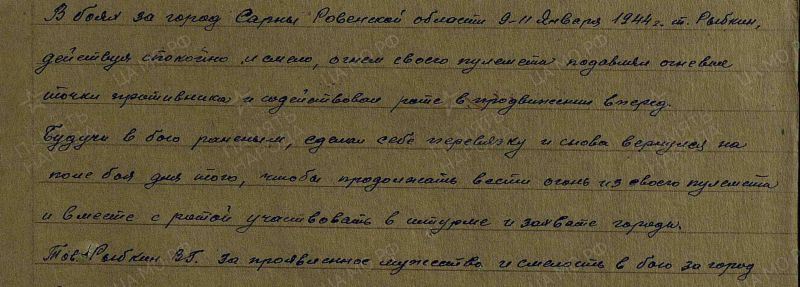 В боях за город Сарны Ровенской области 9-11 Января 1944г. т. Рыбкин,
действуя спокойно и смело, огнем своего пулемета подавлял огневые
точки противника и содействовал роте в продвижении вперед.
Будучи в бою раненым, сделал себе перевязку и снова вернулся на
поле боя для того, чтобы продолжать вести огонь из своего пулемета
и вместе с ротой участвовать в штурме и захвате города.
Тов. Рыбкин В.Г. за проявленное мужество и смелость в бою за город